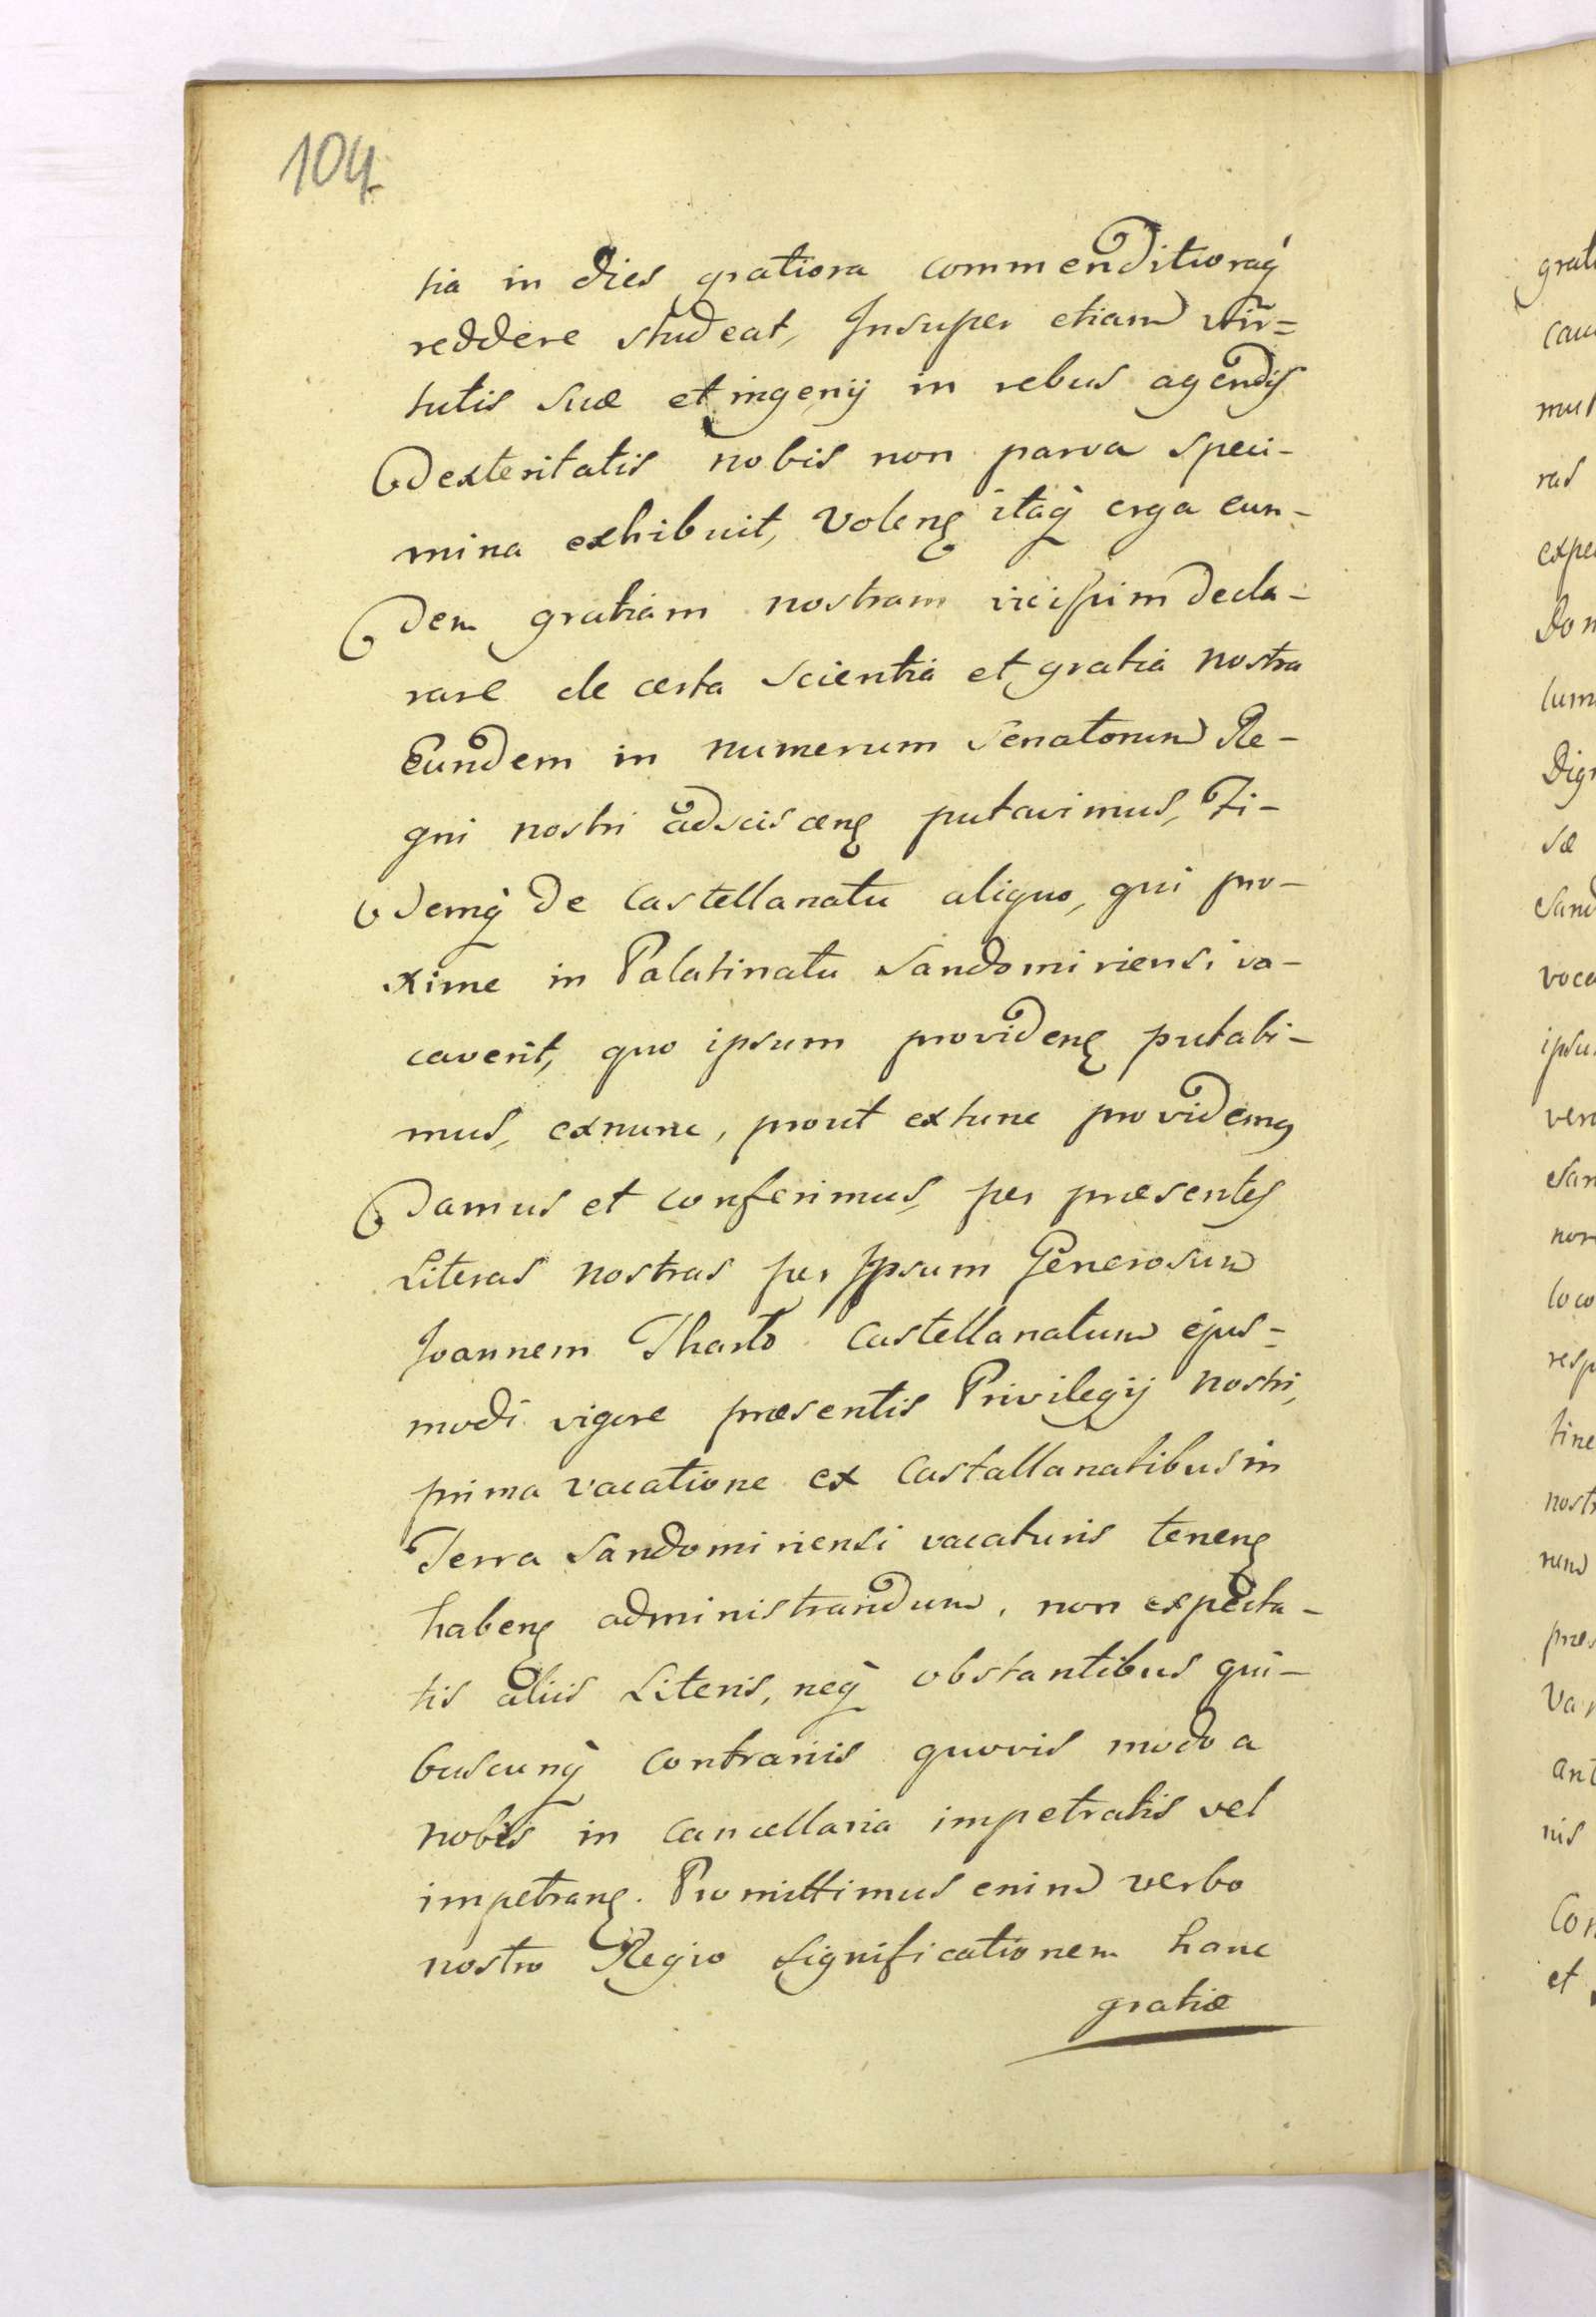 104.
tia in dies gratiora commenditioraq̀
reddere studeat, Insuper etiam vir=
tutis suæ et ingenij in rebus agendis
dexteritatis nobis non parva speci-
mina exhibuit, Volenς itaq̀ erga eun-
dem gratiam nostram vicissim decla-
rare de certa scientia et gratia nostra
Eundem in numerum Senatorum Re-
gni nostri adsciscenς putavimus, Ei-
demq̀ de Castellanatu aliquo, qui pro-
xime in Palatinatu Sandomiriensi va-
caverit, quo ipsum providenς putabi-
mus, exnunc, prout extunc providemς
damus et conferimus, per præsentes
Literas nostras per Ipsum Generosum
Joannem Tharło Castellanatum ejus-
modi vigore præsentis Privilegij nostri,
prima vacatione ex Castallanatibus in
Terra Sandomiriensi vacaturis tenenς
habenς administrandum, non expecta-
tis aliis Literis, neq̀ obstantibus qui-
buscunq̀ contrariis quovis modo a
nobis in cancellaria impetratis vel
impetranς. Promittimus enim verbo
nostro Regio significationem hanc
gratiæ